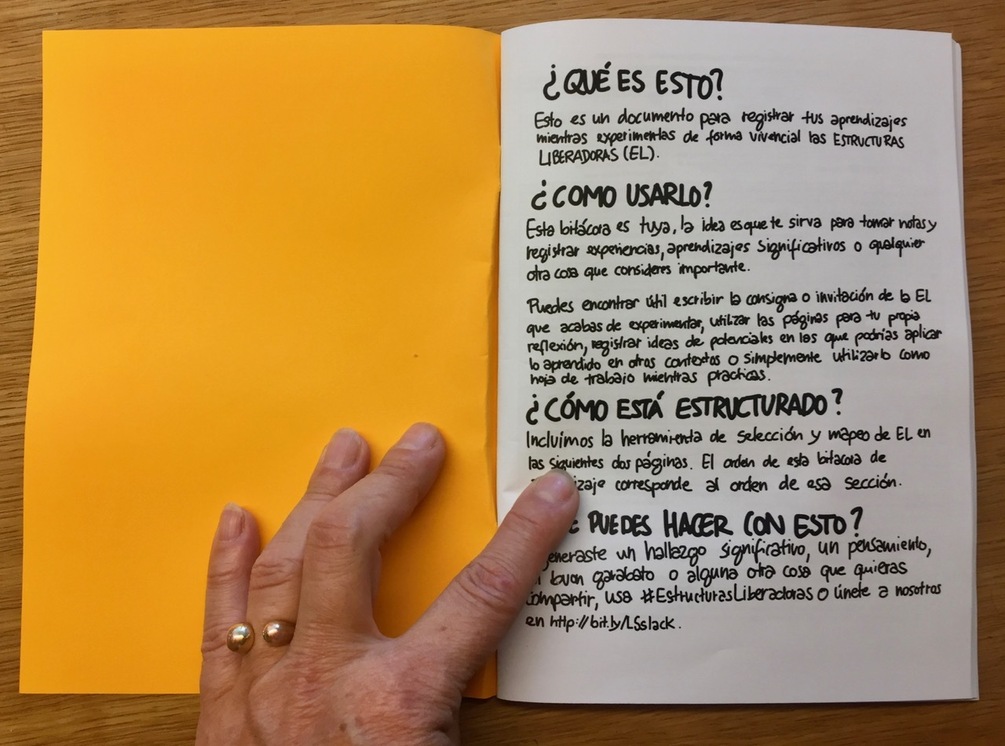 ¿QUÉ ES ESTO?
Esto es un documento para registrar tus aprendizajes
mientras experimentas de forma vivencial las ESTRUCTURAS
LIBERADORAS (EL).
¿COMO USARLO?
Esta bitácora es tuya, la idea es que te sirva para tomar notas y
registrar experiencias, aprendizajes significativos o qualquier
otra cosa que consideres importante.
Puedes encontrar útil escribir la consigna o invitación de la EL
que acabas de experimentar, utilizar las páginas para tu propia
reflexión, registrar ideas de potenciales en los que podrías aplicar
lo aprendido en otros contextos o simplemente utilizarlo como
hoja de trabajo mientras practicas.
¿CÓMO ESTÁ ESTRUCTURADO?
Incluímos la herramienta de selección y mapeo de EL en
las siguientes dos páginas. El orden de esta bitacora de
corresponde al orden de esa sección.
PUEDES HACER CON ESTO?
un hallazgo significativo, un pensamiento,
buen garabato o alguna otra cosa que quieras
compartir, usa #EstructurasLiberadoras o únete a nosotros
en http://bit.ly/LSslack.